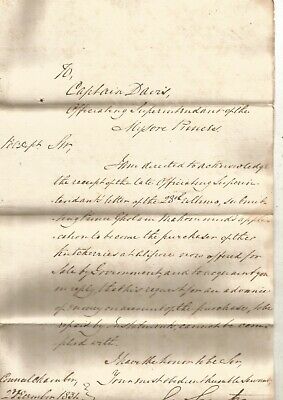 To,
Captain Davis,
Officiating Superintendant of the
Mysore Princes.
Sir,
I am directed to acknowledge
the receipt of the late Officiating Superin
tendant's letter of the 28th Ultimo, submit
ting Prince Gholam Mahommed's appli
cation to become the purchaser of the
Kutcherries at Allipore now offered for
Sale by Government and to request you
in reply that his request for an advance
of money on account of the purchase, to be
repaid by instalments, cannot be com
plied with.
I have the honor to be Sir,
Your most obedient humble Servant
Council Chamber,